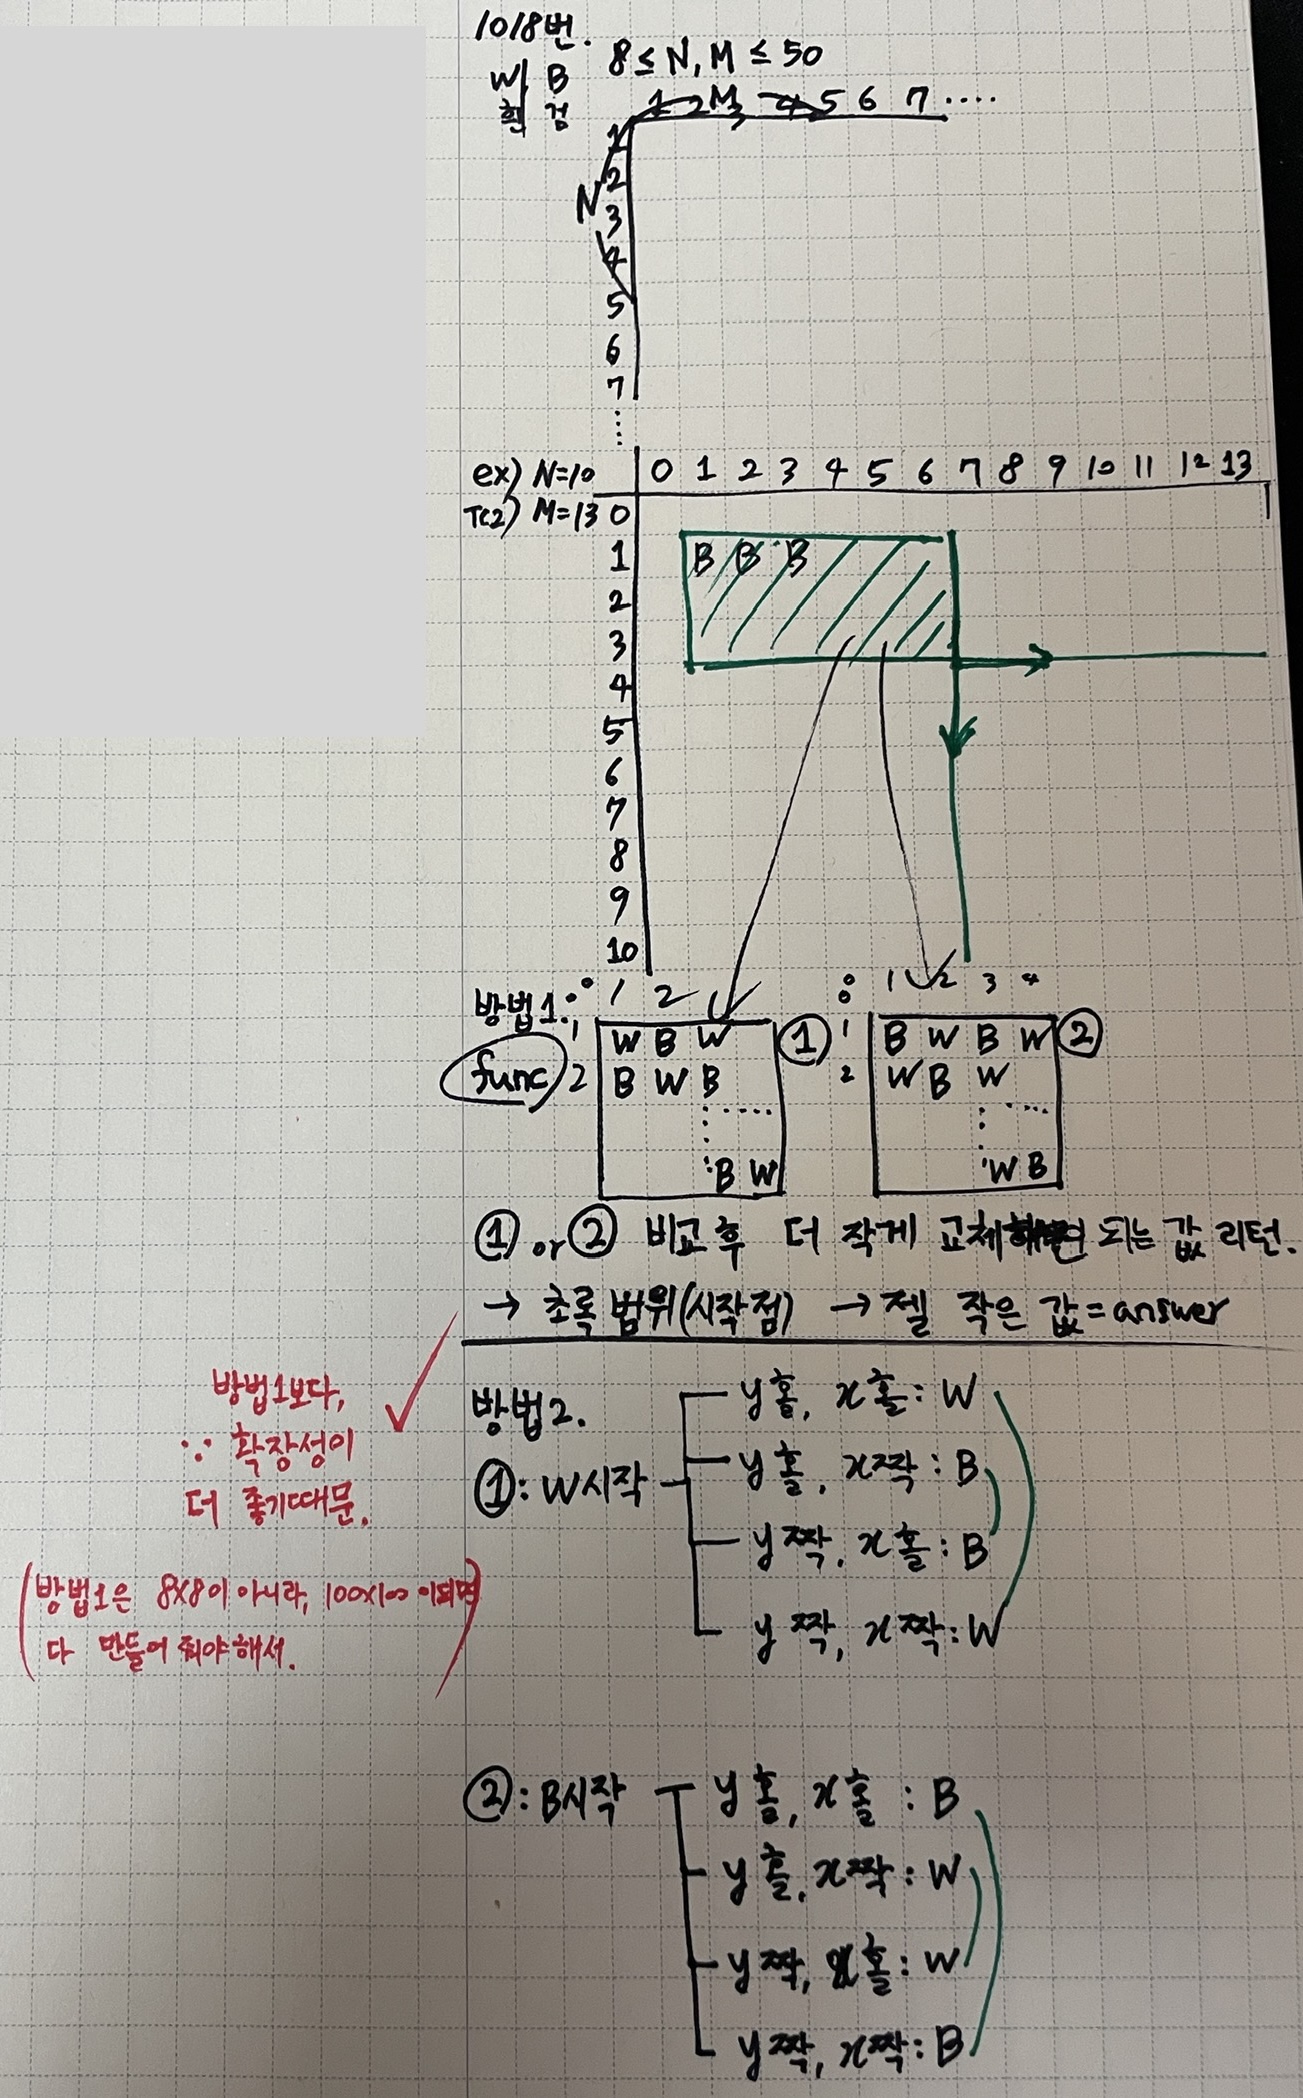 1018번.
8 ≤ N, M ≤ 50
W/B
흰 검
1 2 M 3 4 5 6 7 ····
1
2
N 3
4
5
6
7
⋮
ex) N=10 0 1 2 3 4 5 6 7 8 9 10 11 12 13
TC2) M=13 0
1 B B B
2
3
4
5
6
7
8
9
10
방법1. : 0 1 2 0 1 2 3 4
1 W B W ① 1 B W B W ②
func 2 B W B 2 W B W
B W W B
① or ② 비교 후 더 작게 교체 되는 값 리턴.
→ 초록 범위(시작점) → 젤 작은 값 = answer
방법1보다,
∵ 확장성이
더 좋기때문.
(방법1은 8X8이 아니라, 100x100 이되면
다 만들어 줘야해서.)
방법2.
①: W시작
y홀, x홀 : W
y홀, x짝 : B
y짝, x홀 : B
y짝, x짝 : W
②: B시작
y홀, x홀 : B
y홀, x짝 : W
y짝, x홀 : W
y짝, x짝 : B